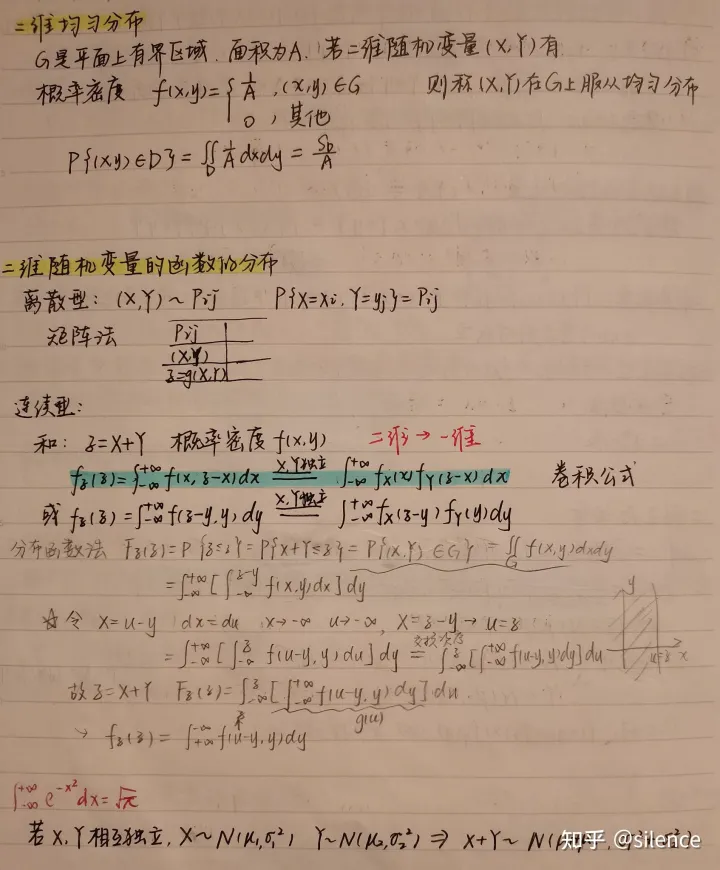 二维均匀分布
G是平面上有界区域. 面积为A. 若二维随机变量(X,Y)有
概率密度 f(x,y)={ 1/A , (x,y)∈G 则称(X,Y)在G上服从均匀分布
0 , 其他
P{(x,y)∈D}=∬_D 1/A dxdy = S_D/A
二维随机变量的函数的分布
离散型: (X,Y)~Pij P{X=xi, Y=yj}=Pij
矩阵法
Pij
(X,Y)
z=g(X,Y)
连续型:
和: z=X+Y 概率密度f(x,y) 二维→一维
f_z(z)=∫_{-∞}^{+∞} f(x, z-x)dx =(X,Y独立)= ∫_{-∞}^{+∞} f_X(x)f_Y(z-x)dx 卷积公式
或 f_z(z)=∫_{-∞}^{+∞} f(z-y,y)dy =(X,Y独立)= ∫_{-∞}^{+∞} f_X(z-y)f_Y(y)dy
分布函数法 F_z(z)=P{z≤z}=P{x+Y≤z}=P{(x,Y)∈G}=∬_G f(x,y)dxdy
=∫_{-∞}^{+∞}[∫_{-∞}^{z-y} f(x,y)dx]dy
☆令 x=u-y dx=du x→-∞ u→-∞, x=z-y→u=z
=∫_{-∞}^{+∞}[∫_{-∞}^{z} f(u-y,y)du]dy =(交换次序)= ∫_{-∞}^{z}[∫_{-∞}^{+∞} f(u-y,y)dy]du
y
u=z x
故z=X+Y F_z(z)=∫_{-∞}^{z}[∫_{-∞}^{+∞} f(u-y,y)dy]du
g(u)
→ f_z(z)=∫_{+∞}^{-∞} f(u-y,y)dy
∫_{-∞}^{+∞} e^{-x²}dx=√π
若X,Y相互独立, X~N(μ₁,σ₁²) Y~N(μ₂,σ₂²) ⇒ X+Y~N(
知乎 @silence